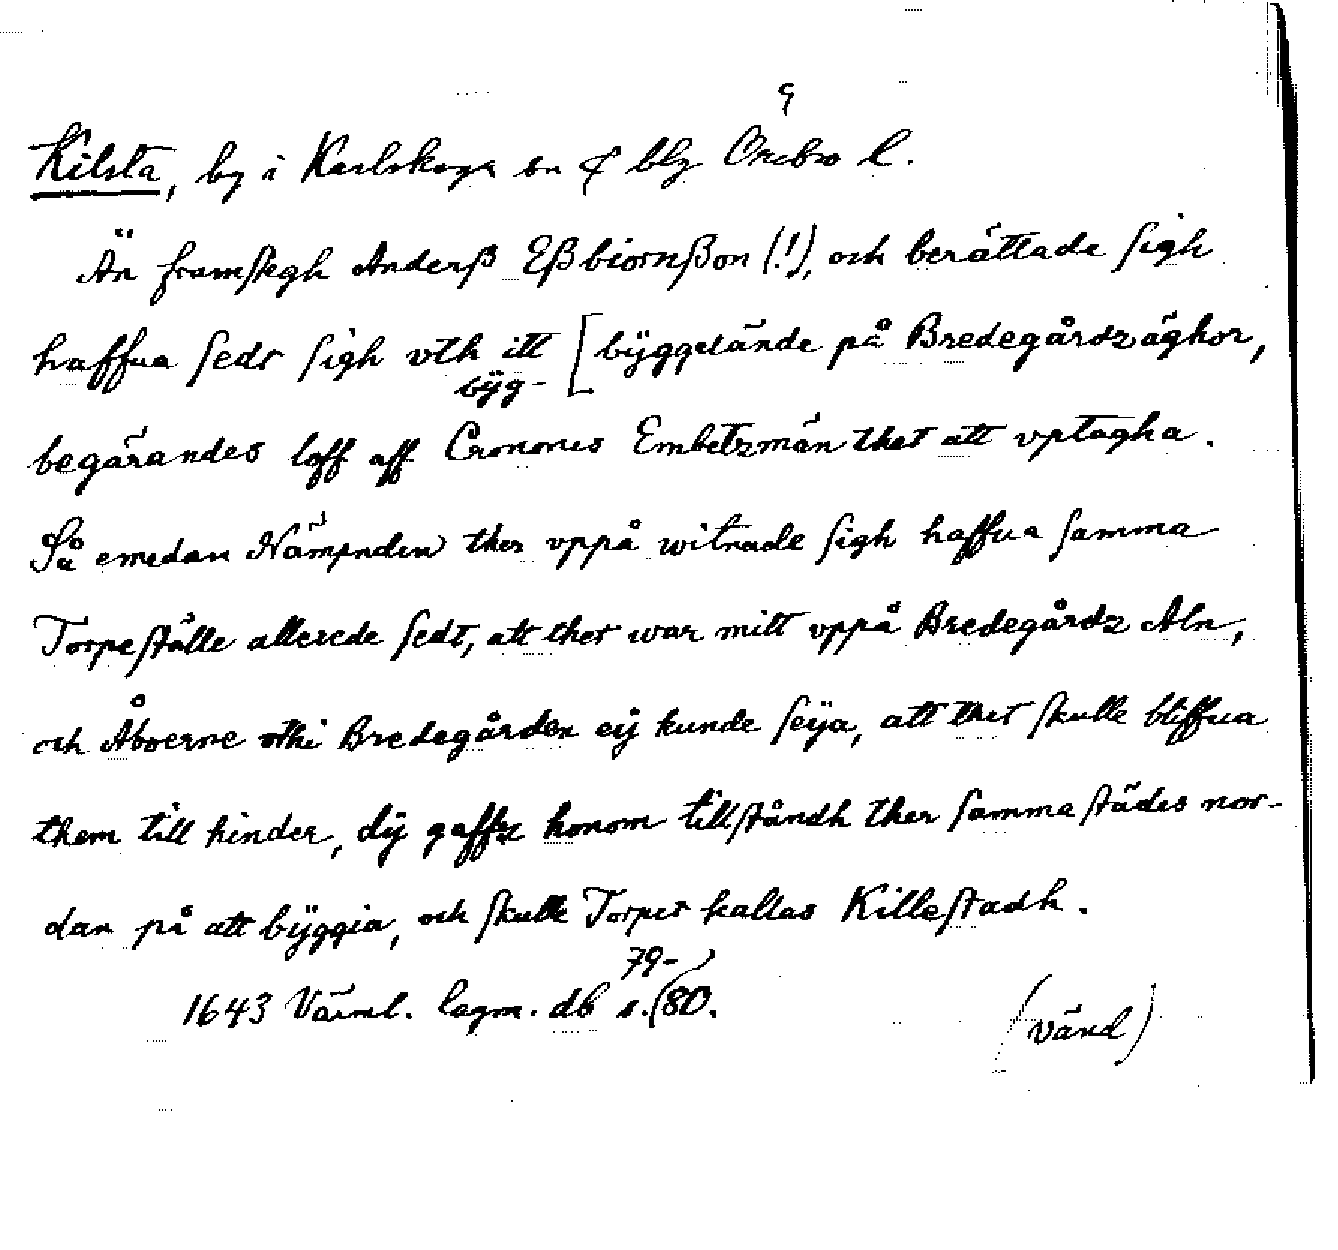 Kilsta, by i Karlskoga sn & blg Örebro l.
Än framstegh Anderß Eßbiornßon (!), och berättade sigh
haffua sedt sigh vth itt [byggelände på Bredegårdz äghor,
byg-
begärandes loff aff Cronones Embetzmän thet att vptagha.
Så emedan Nämpnden ther vppå witnade sigh haffua samma
Torpeställe allerede sedt, att thet war mitt vppå Bredegårdz Aln,
och Åboerne vthi Bredegården eÿ kunde seÿa, att thet skulle bliffua
them till hinder, dÿ gaffz honom tillståndh ther sammastädes nor-
dan på att bÿggia, och skulle Torpet kallas Killestadh.
79-
1643 Värml. lagm. db s. (80.
(vänd)